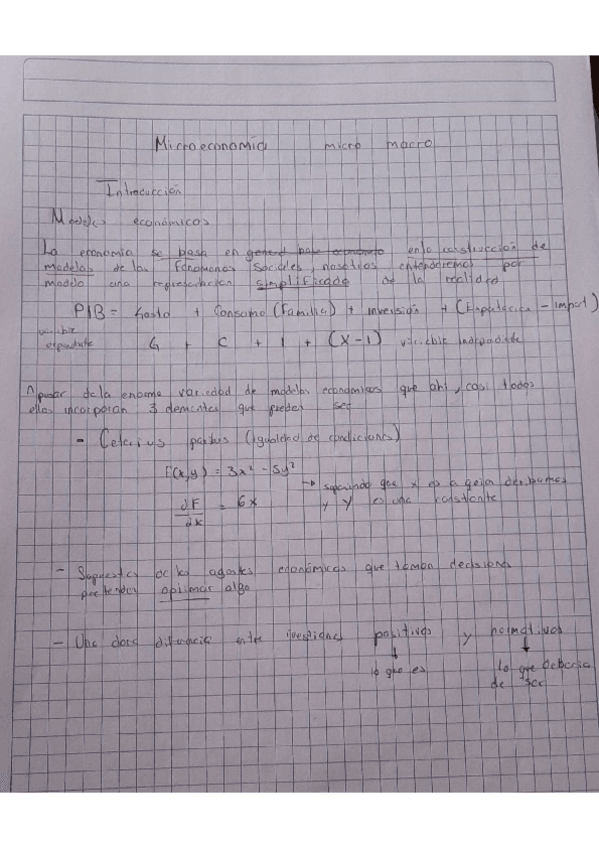 Microeconomia micro macro
Introducción
Modelos económicos
La economia se basa en general base economto en la construcción de
modelos de los fenomenos sociales, nosotros entenderemos por
modelo una representacion simplificada de la realidad
PIB = Gasto + Consumo (Familia) + inversión + (Exportación - import)
variable
dependiente G + C + I + (X-I) variable independiente
Apesar de la enorme variedad de modelos economicos que ahi, casi todos
ellos incorporan 3 elementos que pueden ser
- Ceterius paribus (igualdad de condiciones)
F(x,y) = 3x² - 5y²
∂F/∂x = 6x → suponiendo que x es
y y una constante
- Supuestos de los agentes económicos que toman decisiones
pretenden optimar algo
- Una clara diferencia entre positivas y normativas
lo que es lo que deberia
de ser